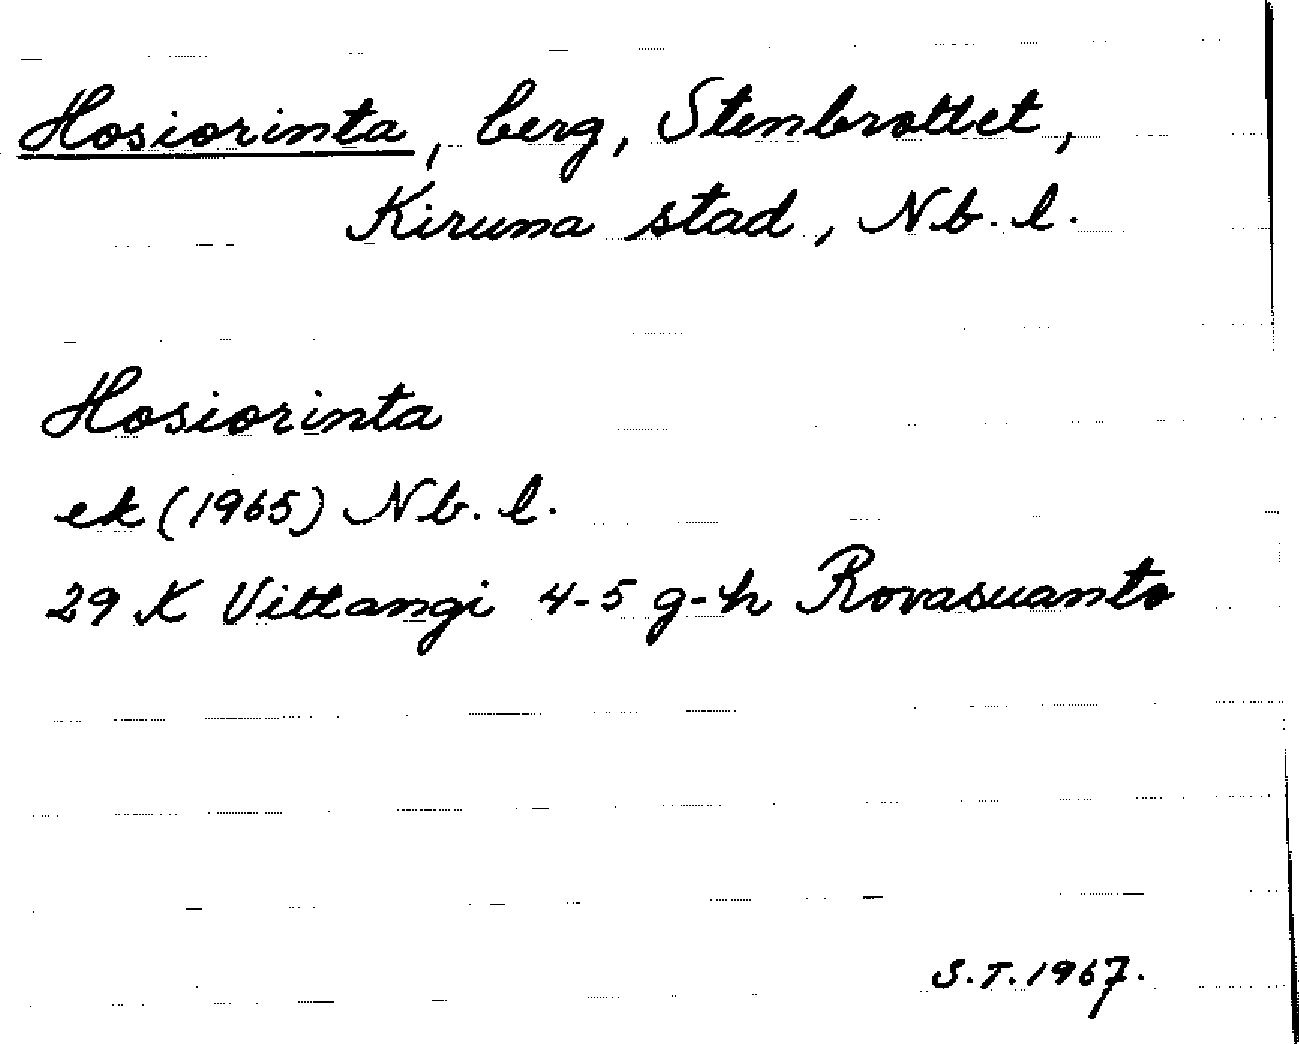 Hosiorinta, berg, Stenbrottet,
Kiruna stad, Nb. l.
Hosiorinta
ek (1965) Nb. l.
29 K Vittangi 4-5 g-h Rovasuanto
S.T. 1967.